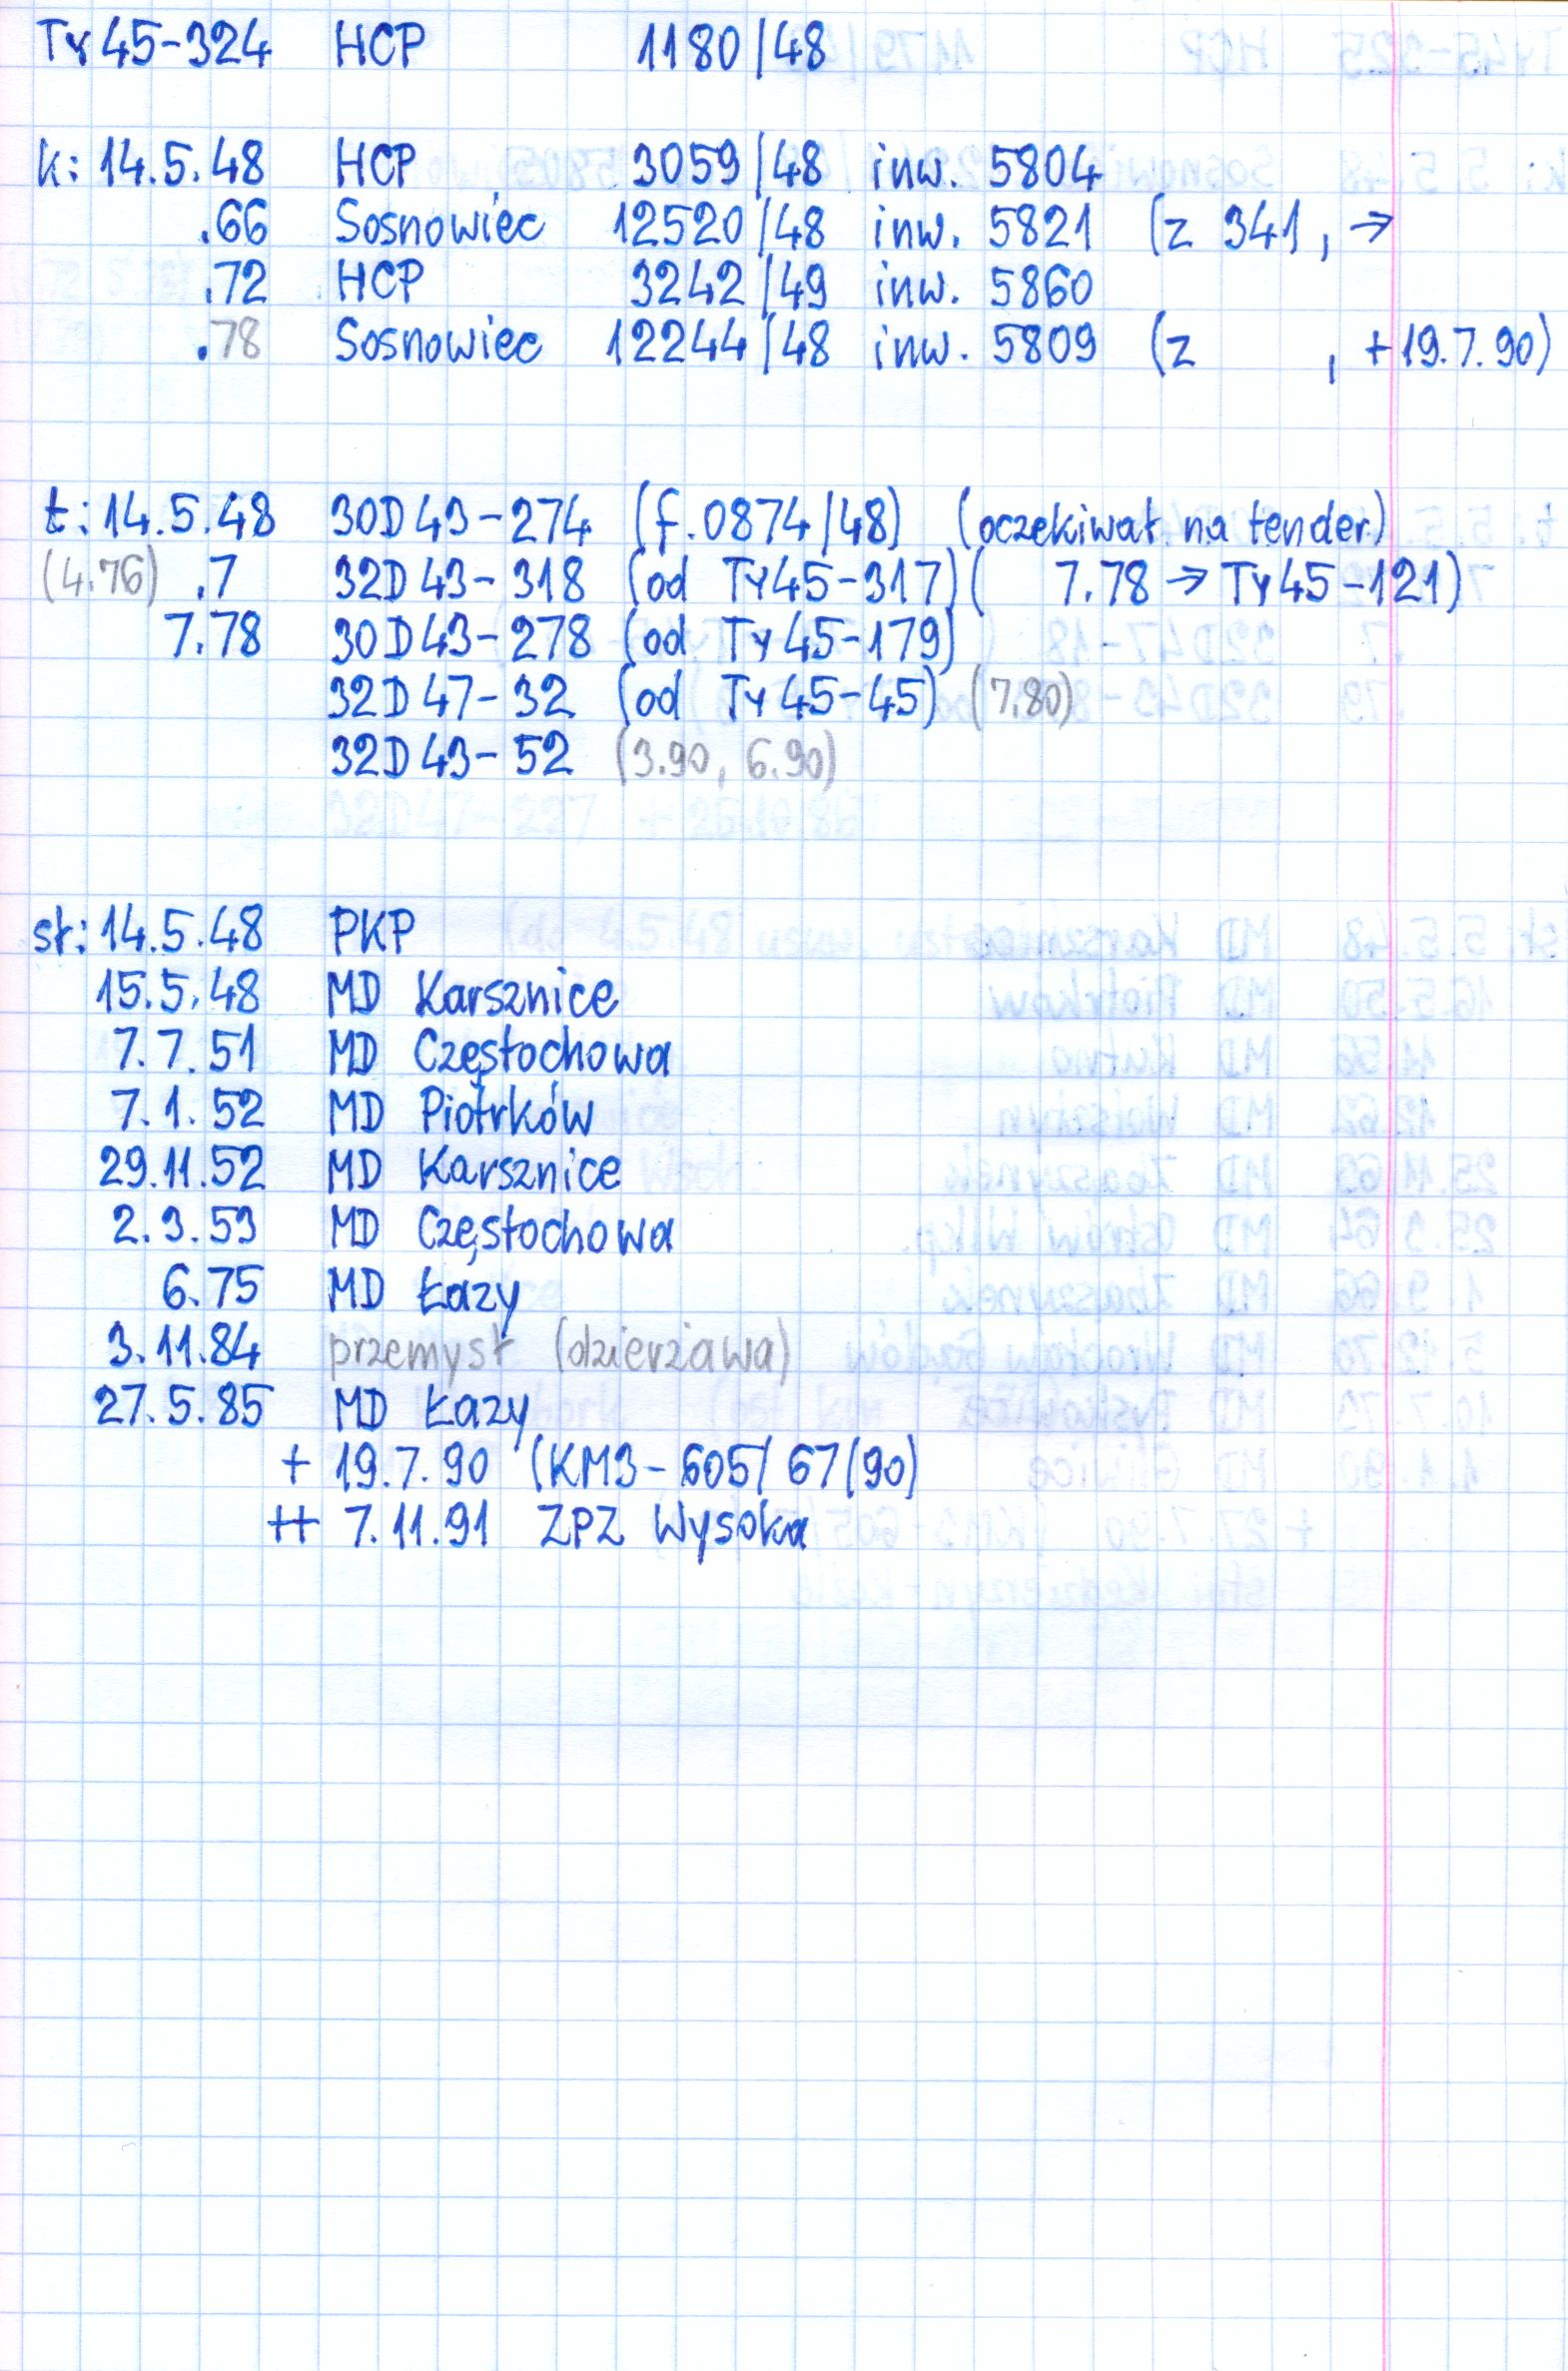 Ty45-324 HCP 1180/48
k: 14.5.48 HCP 3059/48 inw. 5804
.66 Sosnowiec 12520/48 inw. 5821 (z 341, →
.72 HCP 3242/49 inw. 5860
.78 Sosnowiec 12244/48 inw. 5809 (z , +19.7.90)
t: 14.5.48 30D43-274 (f.0874/48) (oczekiwał na tender)
(4.76) .7 32D43-318 (od Ty45-317) ( 7.78 → Ty45-121)
7.78 30D43-278 (od Ty45-179)
32D47-32 (od Ty45-45) (7.80)
32D43-52 (3.90, 6.90)
sł: 14.5.48 PKP
15.5.48 MD Karsznice
7.7.51 MD Częstochowa
7.1.52 MD Piotrków
29.11.52 MD Karsznice
2.3.53 MD Częstochowa
6.75 MD Łazy
3.11.84 przemysł (dzierżawa)
27.5.85 MD Łazy
+ 19.7.90 (KM3-605/67/90)
++ 7.11.91 ZPZ Wysoka